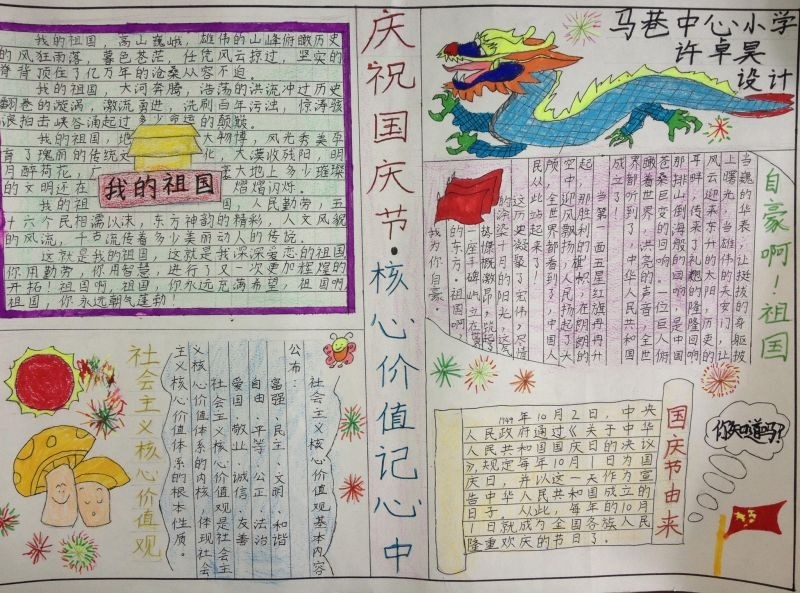 我的祖国，高山巍峨，雄伟的山峰俯瞰历史
的风狂雨落，暮色苍茫，任凭风云掠过，坚实的
脊背顶住了亿万年的沧桑从容不迫。
我的祖国 大河奔腾，浩荡的洪流冲过历史
翻卷的漩涡，激流勇进，洗刷百年污浊，惊涛骇
浪拍击峡谷涌起过多少命运的颠簸。
我的祖国，地
大物博，风光秀美孕
育了瑰丽的传统文
化，大漠收残阳，明
月醉荷花，
大地上多少璀璨
的文明还在
熠熠闪烁。
我的祖国
我的祖
国，人民勤劳，五
十六个民相濡以沫，东方神韵的精彩，人文风貌
的风流，千古流传着多少美丽动人的传说
这就是我的祖国，这就是我深深爱恋的祖国
你用勤劳，你用智慧，进行了又一次更加辉煌的
开拓！祖国啊，祖国，你永远充满希望，祖国啊
祖国，你永远朝气蓬勃！
庆祝国庆节·核心价值记心中
马巷中心小学
许卓昊
设计
自豪啊！祖国
当巍的华表，让挺拔的身躯披
上曙光，当雄伟的天安门，让
风云迎来东升的太阳，历史的
耳畔，传来了礼炮的隆隆回响
那排山倒海般的回响，是中国
苍桑巨变的回响。一位巨人俯
瞰着世界，洪亮的声音，全世
界都听到了，中华人民共和国
成立了
当第一面五星红旗冉冉升
起，那胜利的旗帜，在朗朗的
空中迎风飘扬，人民扬起了大
颅，全世界都看到了，中国人
民从此站起来了
这历史凝聚了宏伟，尽情
的涂染十月的阳光，这
一座丰碑屹立在
的东方。祖国啊
我为你自豪。
社会主义核心价值观
社会主义核心价值观基本内容
公布：
富强、民主、文明、和谐
自由、平等、公正、法治
爱国、敬业、诚信、友善
社会主义核心价值观是社会主
义核心价值体系的内核，体现社会
主义核心价值体系的根本性质。
国庆节由来
1949年10月2日，中央
人民政府通过《关于中华
人民共和国国庆日的决议
》，规定每年10月1日为国
庆日，并以这一天作为宣
告中华人民共和国成立的
日子，从此，每年的10月
1日就成为全国各族人民
隆重欢庆的节日了。
你知道吗？